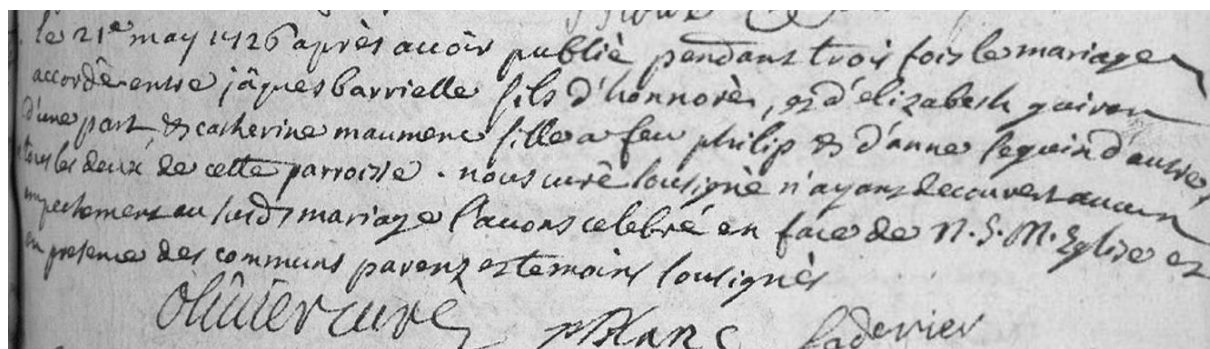 le 21e may 1726 après avoir publié pendant trois fois le mariage
accordé entre jâques barrielle fils d'honnoré, et d'elizabeth guiran
d'une part et catherine maumene fille a feu philip et d'anne seguin d'autre,
tous les deux de cette parroisse. nous curé sousigné n'ayant decouvert aucun
empechement au susdt mariage l'avons celebré en face de N. S. M. Eglise et
en presence des communs parens et temoins sousignés
olivier curé pblanc saderier